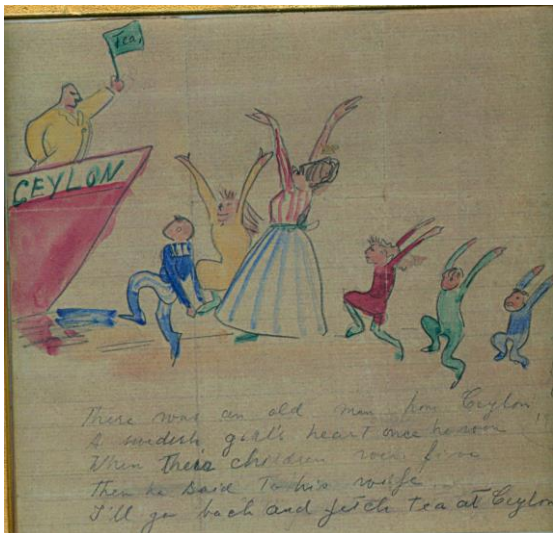 Tea,
CEYLON
There was an old man from Ceylon,
A swedish girl's heart once he won
When their children were five
Then he said to his wife
I'll go back and fetch tea at Ceylon